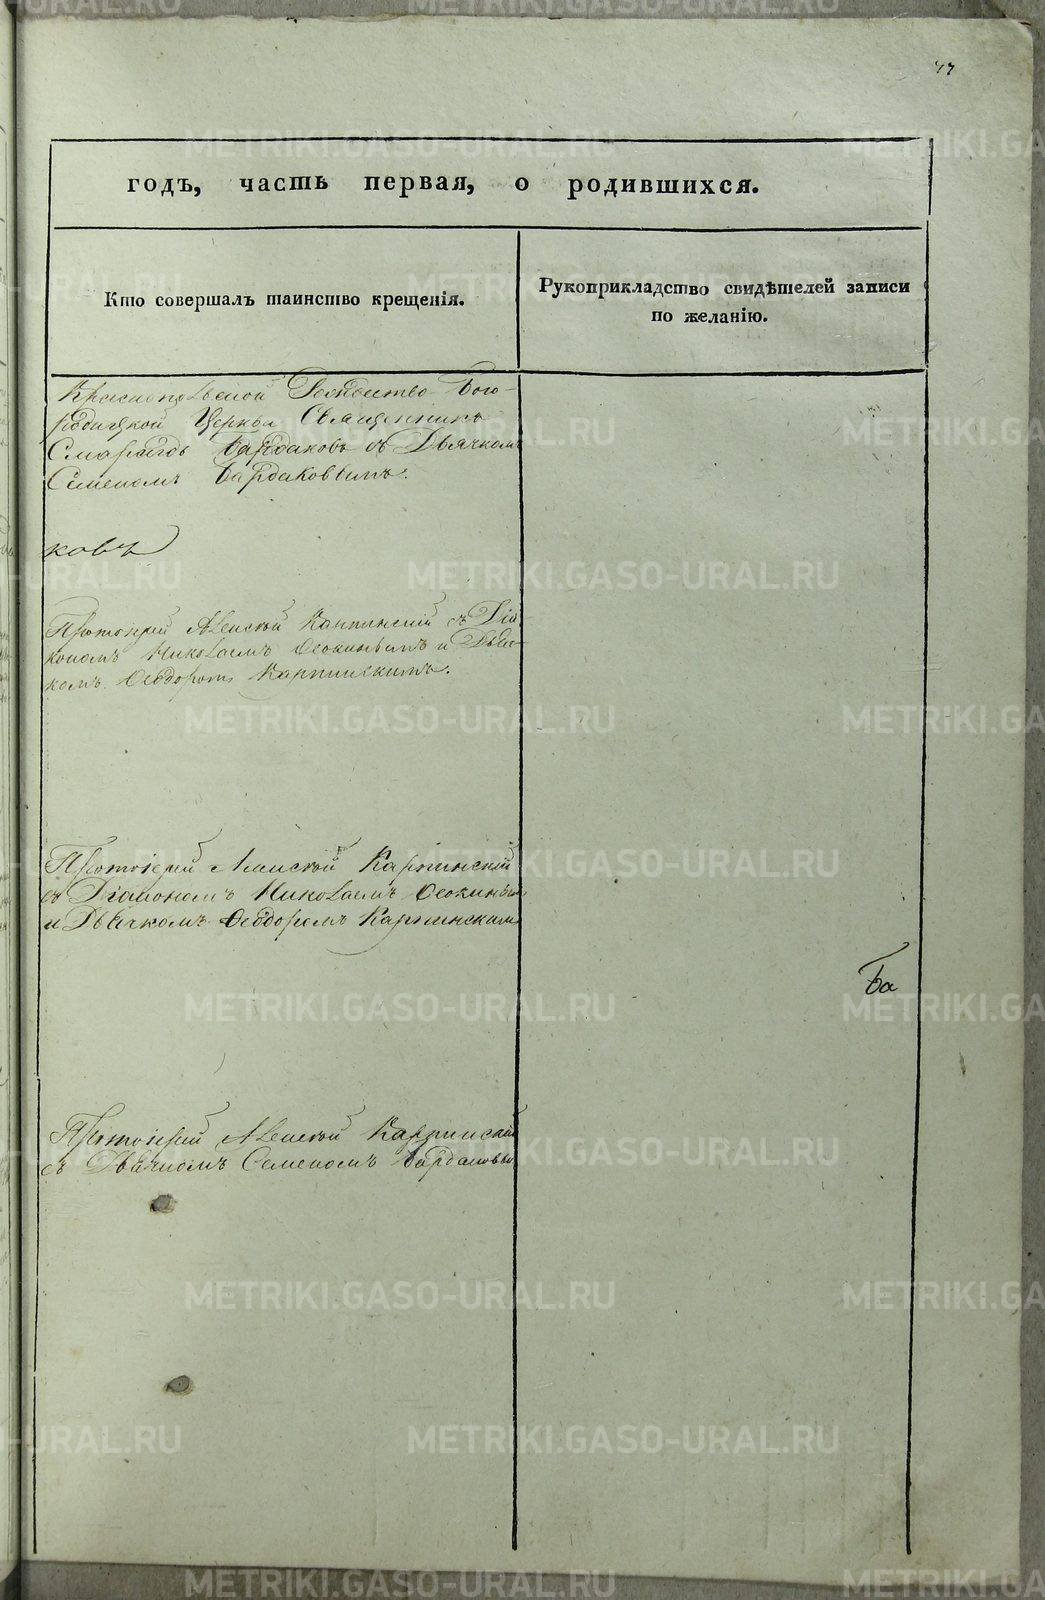 47
годъ, часть первая, о родившихся.
Кто совершалъ таинство крещенія.
Рукоприкладство свидѣтелей записи
по желанію.
Краснопольской Рождество Бого-
родицкой Церкви Священникъ
Смарагдъ Бардаковъ съ Дьячкомъ
Семеномъ Бардаковымъ.
ковъ
Протоіерей Алексѣй Карпинскій съ Діа
кономъ Николаемъ и Дьяч-
комъ Феодоромъ Карпинскимъ.
Протоіерей Алексѣй Карпинскій
съ Діакономъ Николаемъ
и Дьячкомъ Феодоромъ Карпинским
Ба
Протоіерей Алексѣй Карпинскій
съ Дьячкомъ Семеномъ Бардаковы
METRIKI.GASO-URAL.RU